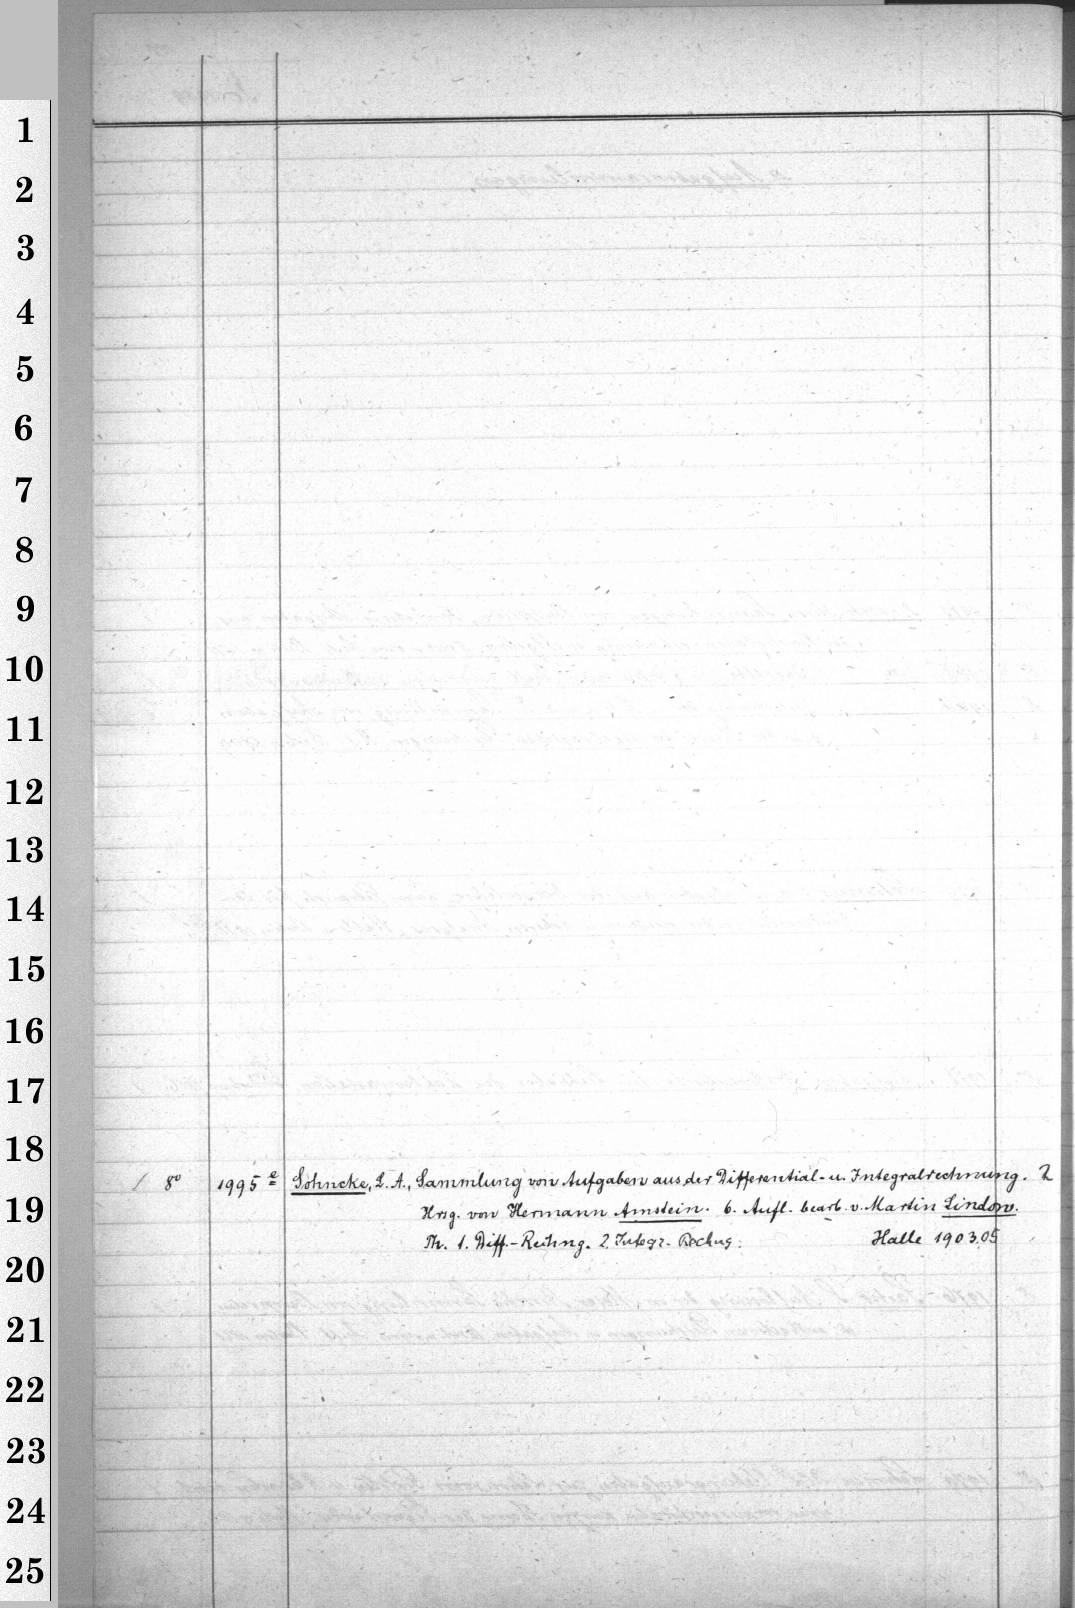 1
2
3
4
5
6
7
8
9
10
11
12
13
14
15
16
17
18
/ 8° 1995 e Sohncke, L. A., Sammlung von Aufgaben aus der Differential- u. Integralrechnung. 2
19
Hrsg. von Hermann Amstein. 6. Aufl. bearb. v. Martin Lindow.
Th. 1. Diff.-Rechng. 2. Integr. Rechng. Halle 1903.05
20
21
22
23
24
25